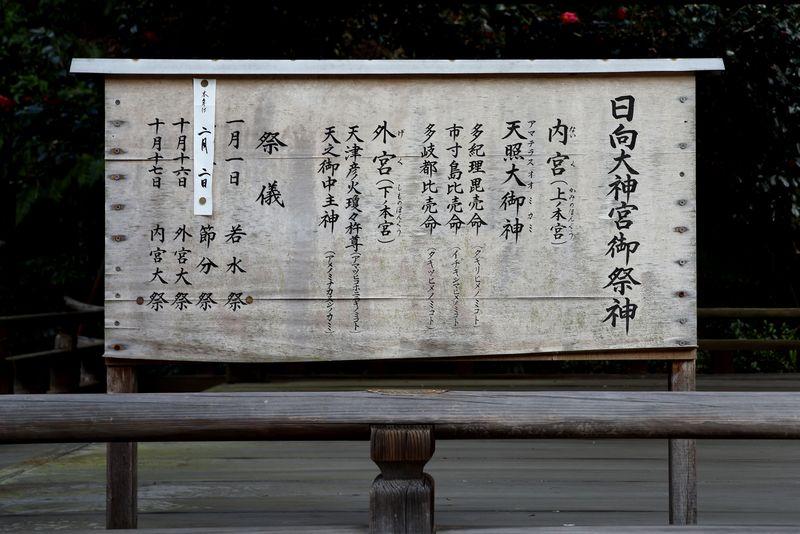 日向大神宮御祭神
内宮(上ノ本宮)
ないくう
かみのほんぐう
天照大御神
アマテラスオオミカミ
多紀理毘売命(タキリヒメノミコト)
市寸島比売命(イチキシマヒメノミコト)
多岐都比売命(タキツヒメノミコト)
外宮(下ノ本宮)
げくう
しものほんぐう
天津彦火瓊々杵尊(アマツヒコホニニギノミコト)
天之御中主神(アメノミナカヌシノカミ)
祭儀
一月一日 若水祭
本年は
二月二日 節分祭
十月十六日 外宮大祭
十月十七日 内宮大祭